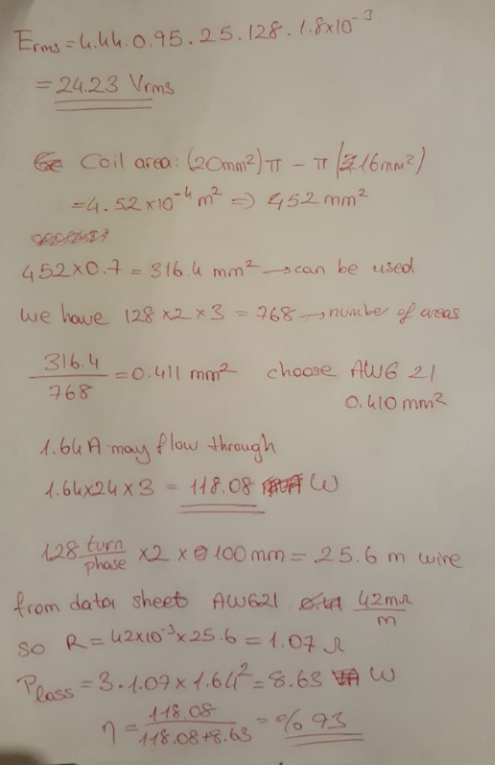 Erms = 4.44 . 0.95 . 25 . 128 . 1.8x10⁻³
= 24.23 Vrms
Coil area: (20mm²)π - π(16mm²)
= 4.52 x10⁻⁴ m² => 452 mm²
452x0.7 = 316.4 mm² → can be used
we have 128 x2 x3 = 768 → number of areas
316.4/768 = 0.411 mm² choose AWG 21
0.410 mm²
1.64A may flow through
1.64x24x3 = 118.08 W
128 turn/phase x2 x 100mm = 25.6 m wire
from data sheet AWG21 42mΩ/m
so R = 42x10⁻³x25.6 = 1.07 Ω
Ploss = 3.1.07x1.64² = 8.63 W
η = 118.08/118.08+8.63 = %93